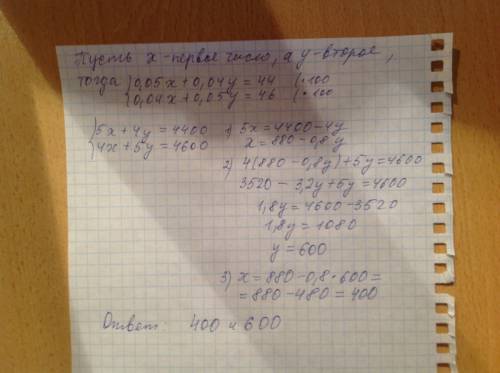 Пусть x - первое число, а y - второе,
тогда { 0,05x + 0,04y = 44 | • 100
{ 0,04x + 0,05y = 46 | • 100
{ 5x + 4y = 4400 1) 5x = 4400 - 4y
{ 4x + 5y = 4600 x = 880 - 0,8y
2) 4(880 - 0,8y) + 5y = 4600
3520 - 3,2y + 5y = 4600
1,8y = 4600 - 3520
1,8y = 1080
y = 600
3) x = 880 - 0,8 • 600 =
= 880 - 480 = 400
Ответ: 400 и 600